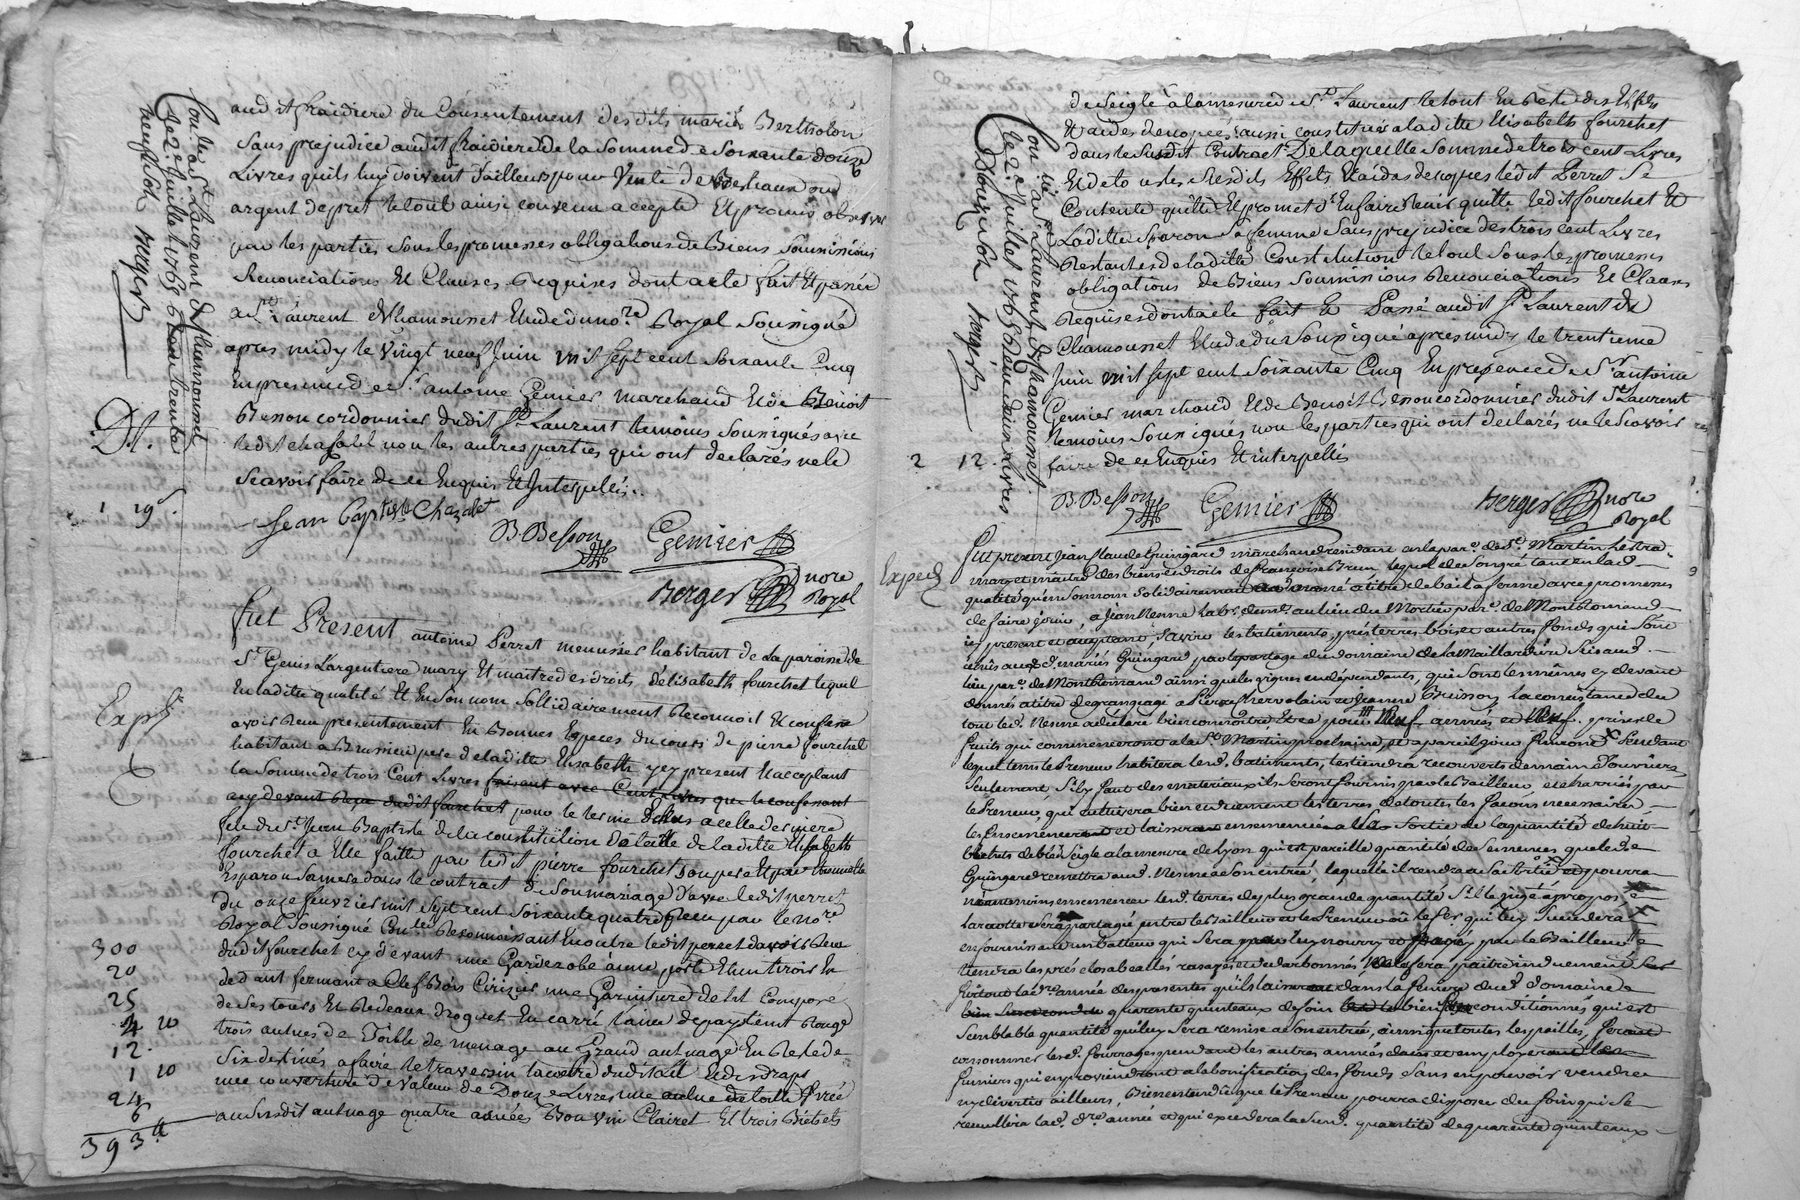 audit fraidiere du Consentement des dits mariés Bertholon
Sans prejudice audit fraidiere de la Somme de Soixante douze
Livres quils luy doivent d'ailleurs pour Vente de Bestiaux ou
argent de pret le tout ainsi convenu accepté Et promis observer
par les parties Sous les promesses obligations de Biens Soumissions
Renonciations Et Clauses Requises dont acte fait Et passé
a St. Laurent de Chamousset Etude du no.re Royal Soussigné
apres midy le Vingt neuf Juin mil sept cent Soixante Cinq
En presence de Sr. antoine Gemier Marchand Et de Benoit
Besson cordonnier dudit St. Laurent temoins Soussignés avec
ledit chazalet non les autres parties qui ont declarés ne le
Scavoir faire de ce Enquis Et Interpellés.
Jean Baptiste Chazalet
B. Besson
Gemier
Berger nore
Royal
Conlle a St. Laurent de Chamousset
le 2e Juillet 1765 Reçu trente
neuf sols Berger
Dt.
1 19s
fut Present antoine Perret menuisier habitant de la paroisse de
St. Genis L'argentiere mary Et maitre des droits d'élisabeth fourchet lequel
En ladite qualité Et En Son nom Sollidairement Reconnoit Et confesse
avoir Reçu presentement En Bonnes Especes du cours de pierre fourchet
habitant a Brussieu pere de ladite Elisabeth icy present Et acceptant
la Somme de trois Cent Livres faisant avec Cent Livres que le confessant
a cy devant Reçu dudit fourchet pour le terme Echus a celle de
fete de St. Jean Baptiste de la constitution Dotalle de ladite Elisabeth
fourchet a Elle faitte par ledit pierre fourchet Son pere Et par
Esparon Sa mere dans le contract de Son mariage d'avec ledit perret
du onze fevrier mil Sept cent Soixante quatre Reçu par le no.re
Royal Soussigné Conlé Reconnoissant En outre ledit perret d'avoir Reçu
dudit fourchet cy devant une Garderobe a une porte Et un tiroir En
dedans fermant a Clef Bois Cerizier une Garniture de lit Composé
de Ses tours Et Rideaux droguet En carré laine depaylient Rouge
trois autres de Toille de menage au Grand aunage En Reste de
Six destinés a faire le traversin la coetre dudit lit Et des draps
une couverture de Valeur de Douze Livres une autre de toille
au Susdit aunage quatre anées Bon Vin Clairet Et trois Bichets
Exped
300
20
25
4 10
12
1 10
24
6
393 ₶
de Seigle a la mesure de St. Laurent le tout En Reste des Effets
Et aides de nopces aussi constitués a ladite Elisabeth fourchet
dans le Susdit Contract De laquelle Somme de trois cent Livres
Et de tous les Susdits Effets Et aides de nopces ledit Perret Se
Contente quitte Et promet d'En faire tenir quitte ledit fourchet Et
Ladite Sparon Sa femme Sans prejudice des trois cent Livres
Restantes de ladite Constitution le tout Sous les promesses
obligations de Biens Soumissions Renonciations Et Clauses
Requises dont acte fait Et Passé audit St. Laurent de
Chamousset Etude du Soussigné apres midy le trentieme
Juin mil sept cent Soixante Cinq En presence de Sr. antoine
Gemier marchand Et de Benoit Besson cordonnier dudit St. Laurent
temoins Soussignés non les parties qui ont declarés ne le Scavoir
faire de ce Enquis Et interpellés
B. Besson
Gemier
Berger nore
Royal
Conlé a St. Laurent de Chamousset
le 2e Juillet 1765 Reçu deux livres
Douze sols Berger
2 12.
Exped
fut present Jean Claude Guingard marchand en la par.e de St. Martin Lestra
mary et maitre des biens et droits de françoise Brun lequel de Son gré tant en lad.
qualité qu'en Son nom Solidairement a donné a titre de bail a ferme avec promesse
de faire jouir, a Jean Nesme lab.r dem.t au lieu du Mortier par.e de Montromand
icy present et acceptant, Savoir les batiments, prés terres bois et autres fonds qui Sont
unis auxd. mariés Guingard par le partage du domaine de la Maillardiere Scis aud.
lieu par.e de Montromand ainsi que les vignes en dépendants, qui Sont les mêmes cy devant
donnés a titre de grangeage a Pierre Nervolain et Jeanne Buisson la consistance du
tout led. Nesme a déclaré bien connoître, Et ce pour Neuf années et Neuf prises de
fruits qui commenceront a la St. Martin prochaine, et a pareil jour finiront Pendant
lequel tems le Preneur habitera lesd. batiments, les tiendra recouverts de main d'ouvriers
Seulement S'il y faut des materiaux ils Seront fournis par le Bailleur et charriés par
le Preneur, qui cultivera bien en diement les terres de toutes les façons necessaires
les ensemencera et laissera ensemencées a la Sortie de la quantité de huit
bichets de bled Seigle a la mesure de Lyon qui est pareille quantité de semences que led.
Guingard remettra aud. Nesme a Son entrée, laquelle il rendra a Sa Sortie et pourra
neanmoins ensemencer lesd. terres de plus grande quantité S'il le juge a propos
la recolte Sera partagé entre le Bailleur et le Preneur
en fournissant un batteur qui Sera par luy nourry et payé par le Bailleur
tiendra les prés clos abeallés rasayés et dedarbonnés
Surtout la d.re année des presentes qu'il laissera dans la feniere dud. domaine
quarente quintaux de foin bien conditionnés qui est
Semblable quantité qui luy Sera remise a Son entrée, ainsi que toutes les pailles, fera
consommer lesd. fourrages pendant les autres années dans et employera les
fumiers qui en proviendront a la bonification des fonds Sans en pouvoir vendre
ny divertir ailleurs, Bien entendu que le Preneur pourra disposer du foin qui Se
recueillira lad. d.re année et qui excedera lesud. quantité de quarente quintaux